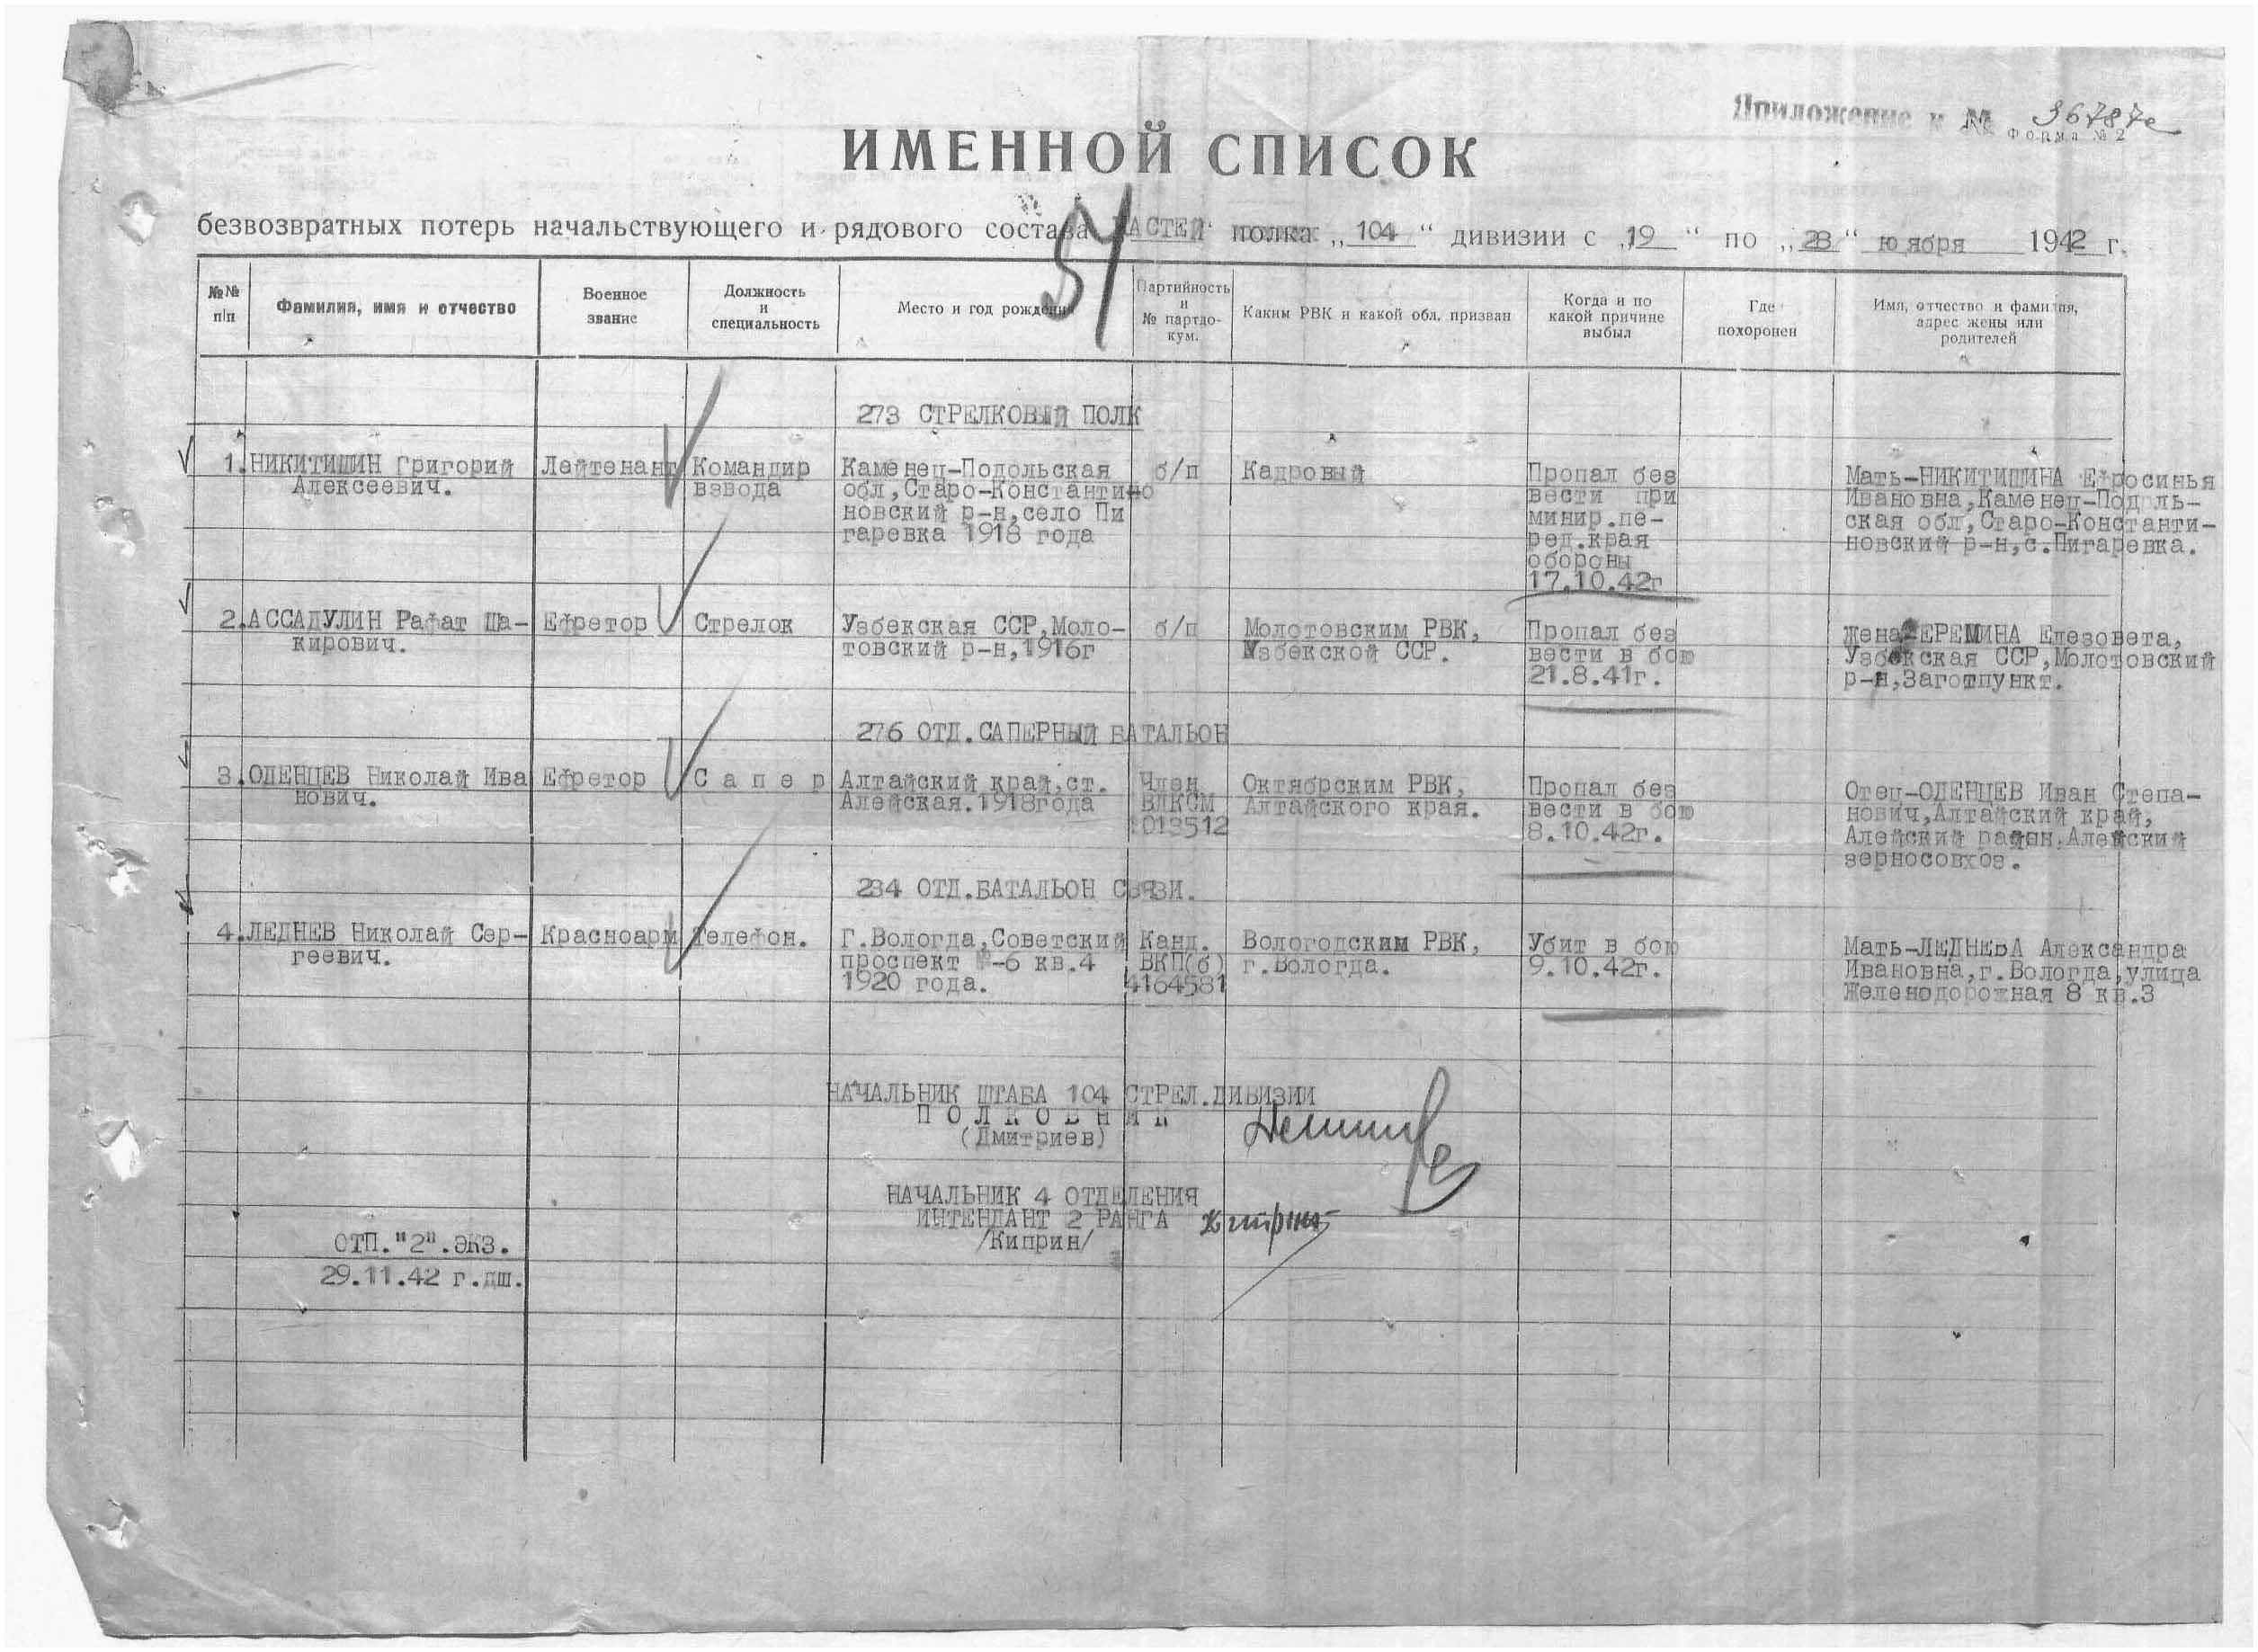 Приложение к № 36787с
Форма № 2
ИМЕННОЙ СПИСОК
51
безвозвратных потерь начальствующего и рядового состава ЧАСТЕЙ полка „104“ дивизии с „19“ по „28“ ноября 1942 г.
№№ п/п Фамилия, имя и отчество Военное звание Должность и специальность Место и год рождения Партийность и № партдокум. Каким РВК и какой обл. призван Когда и по какой причине выбыл Где похоронен Имя, отчество и фамилия, адрес жены или родителей
273 СТРЕЛКОВЫЙ ПОЛК
1. НИКИТИШИН Григорий Лейтенант Командир Каменец-Подольская б/п Кадровый Пропал без Мать-НИКИТИШИНА Ефросинья
Алексеевич. взвода обл,Старо-Константино вести при Ивановна,Каменец-Подоль-
новский р-н,село Пи минир.пе- ская обл,Старо-Константи-
гаревка 1918 года ред.края новский р-н,с.Пигаревка.
обороны
17.10.42г
2. АССАДУЛИН Рафат Ша- Ефретор Стрелок Узбекская ССР,Моло- б/п Молотовским РВК, Пропал без Жена-ЕРЕМИНА Елезовета,
кирович. товский р-н,1916г Узбекской ССР. вести в бою Узбекская ССР,Молотовский
21.8.41г. р-н,Заготпункт.
276 ОТД.САПЕРНЫЙ БАТАЛЬОН
3. ОДЕНЦЕВ Николай Ива Ефретор С а п е р Алтайский край,ст. Член Октябрским РВК, Пропал без Отец-ОДЕНЦЕВ Иван Степа-
нович. Алейская.1918года ВЛКСМ Алтайского края. вести в бою нович,Алтайский край,
013512 8.10.42г. Алейский район.Алейский
зерносовхоз.
234 ОТД.БАТАЛЬОН СВЯЗИ.
4. ЛЕДНЕВ Николай Сер- Красноарм Телефон. Г.Вологда,Советский Канд. Вологодским РВК, Убит в бою Мать-ЛЕДНЕВА Александра
геевич. проспект №-6 кв.4 ВКП(б) г.Вологда. 9.10.42г. Ивановна,г.Вологда,улица
1920 года. 4164581 Желенодорожная 8 кв.3
НАЧАЛЬНИК ШТАБА 104 СТРЕЛ.ДИВИЗИИ
П О Л К О В Н И К
(Дмитриев)
НАЧАЛЬНИК 4 ОТДЕЛЕНИЯ
ИНТЕНДАНТ 2 РАНГА
/Киприн/
ОТП."2".ЭКЗ.
29.11.42 г.дш.